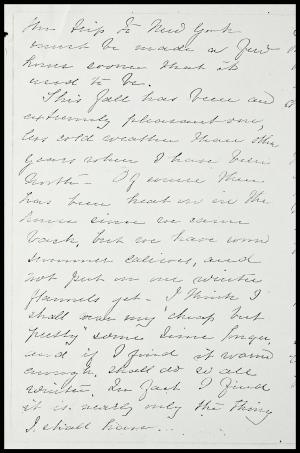 the trip to New York
must be made a few
hours sooner than it
used to be.
This fall has been an
extremely pleasant one,
less cold weather than other
years when I have been
North - Of course there
has been heat on in the
house since we came
back, but we have worn
summer calicoes, and
not put on our winter
flannels yet - I think I
shall wear my "cheap but
pretty" some time longer
and if I find it warm
enough, shall do so all
winter. In fact I find
it is nearly only the thing
I shall have...